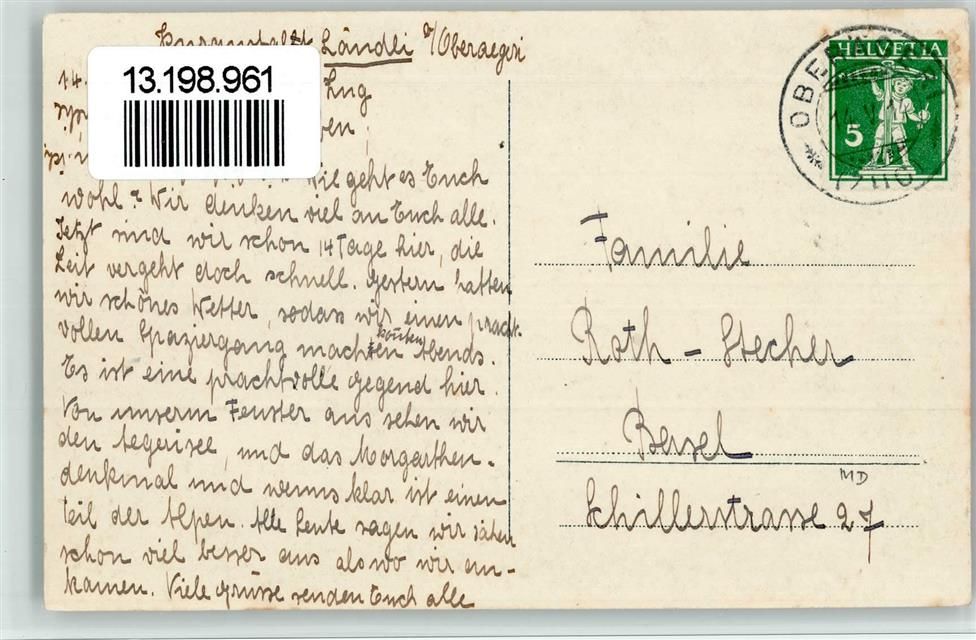 Kuranstalt Ländli b/Oberaegeri
13.198.961
14.
Zug
ben,
Wie geht es Euch
wohl? Wir denken viel an Euch alle.
Jetzt sind wir schon 14 Tage hier, die
Zeit vergeht doch schnell. Gestern hatten
wir schönes Wetter, sodass wir einen pracht-
vollen Spaziergang machen konnten abends.
Es ist eine prachtvolle Gegend hier.
Von unserm Fenster aus sehen wir
den Aegerisee, und das Morgarthen-
denkmal und wenns klar ist einen
teil der Alpen. Alle Leute sagen wir sähen
schon viel besser aus als wo wir an-
kamen. Viele Grüsse senden Euch alle
HELVETIA
5
OBER
ZUG
Familie
Roth - Stecher
Basel
MD
Schillerstrasse 27